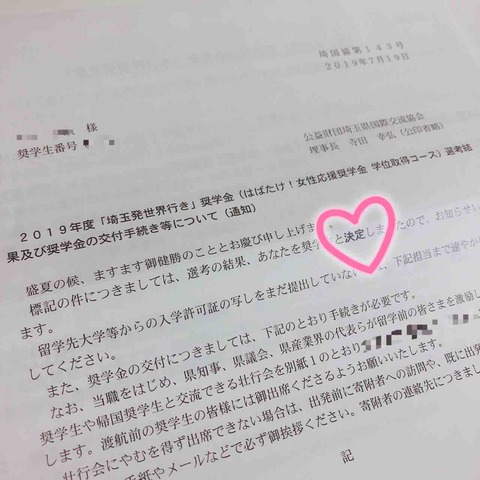 埼国協第143号
2019年7月19日
様
奨学生番号
公益財団埼玉県国際交流協会
理事長 寺田 幸弘(公印省略)
2019年度「埼玉発世界行き」奨学金(はばたけ!女性応援奨学金 学位取得コース)選考結
果及び奨学金の交付手続き等について(通知)
盛夏の候、ますます御健勝のこととお慶び申し上げます。
標記の件につきましては、選考の結果、あなたを奨学生と決定しましたので、お知らせい
ます。
留学先大学等からの入学許可証の写しをまだ提出していない は、下記担当まで速やか
してください。
また、奨学金の交付につきましては、下記のとおり手続きが必要です。
なお、当職をはじめ、県知事、県議会、県産業界の代表らが留学前の皆さまを激励し
奨学生や帰国奨学生と交流できる壮行会を別紙1のとおり
します。渡航前の奨学生の皆様には御出席くださるようお願いいたします。
壮行会にやむを得ず出席できない場合は、出発前に寄附者への訪問や、既に出発
手紙やメールなどで必ず御挨拶ください。寄附者の連絡先につきまし
記